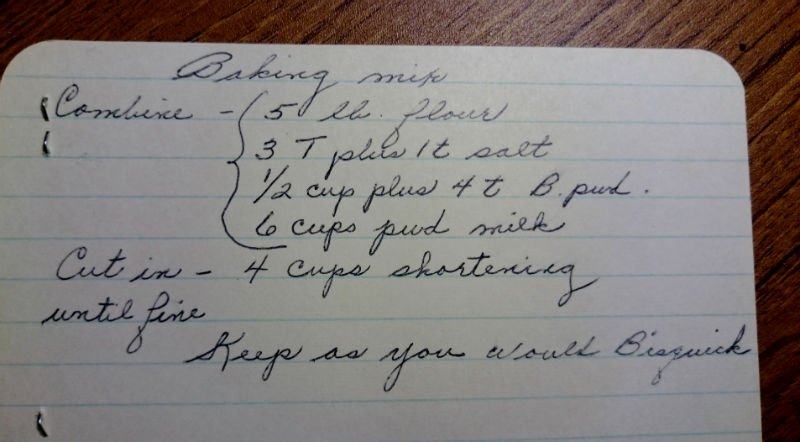 Baking mix
Combine - { 5 lb. flour
3 T plus 1t salt
1/2 cup plus 4 t B. pwd.
6 cups pwd milk
Cut in - 4 cups shortening
until fine
Keep as you would Bisquick